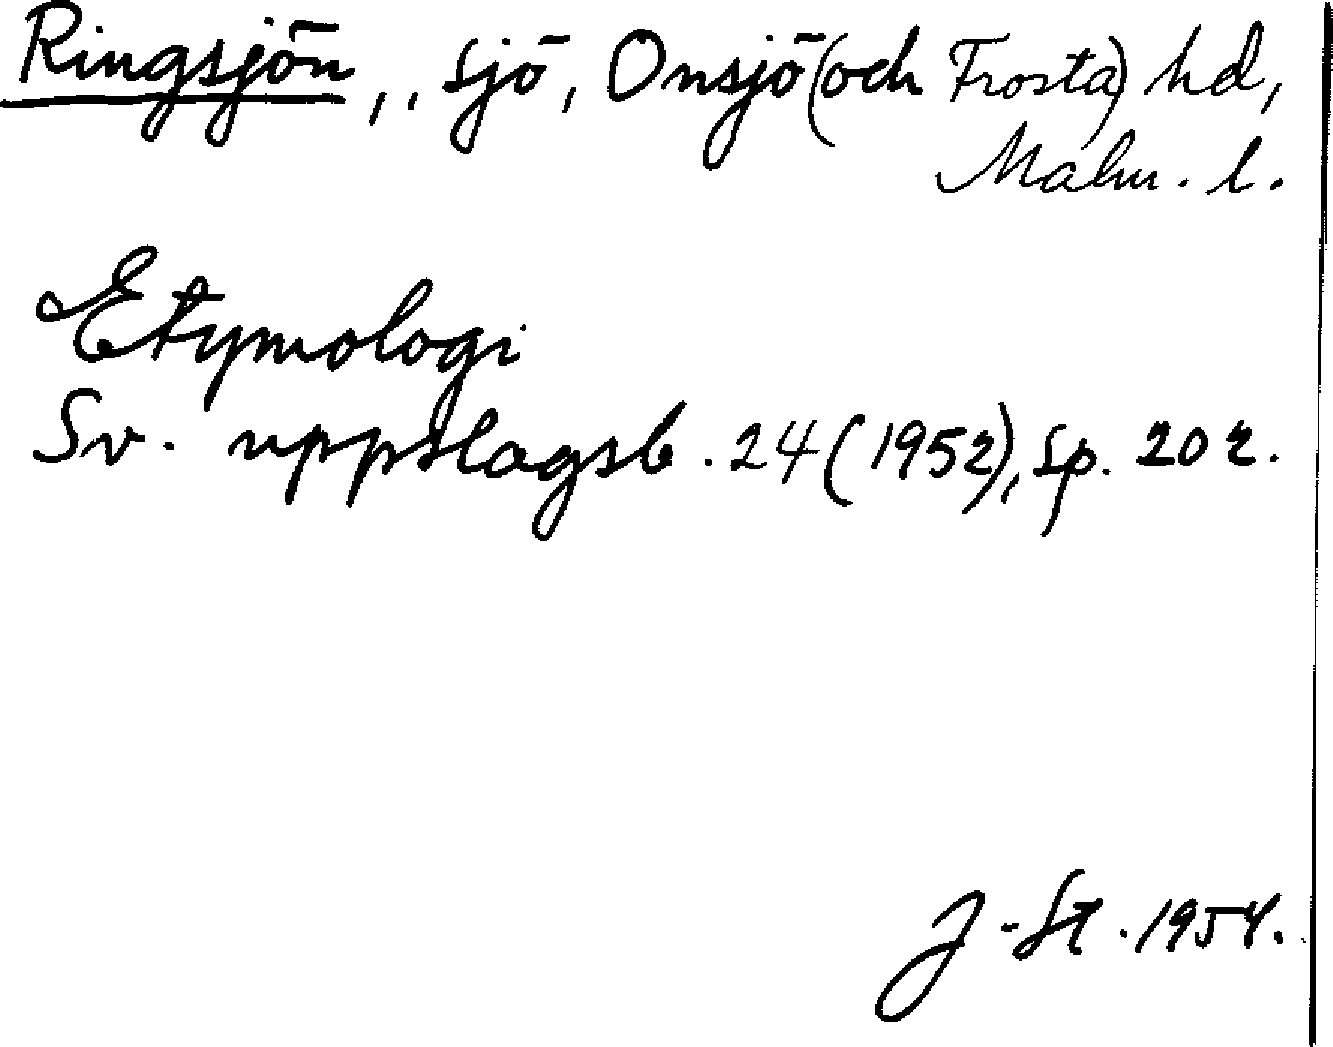 Ringsjön,, sjö, Onsjö (och Frosta) hd,
Malm. l.
Etymologi
Sv. uppslagsb. 24 (1952), sp. 202.
J-St. 1954.